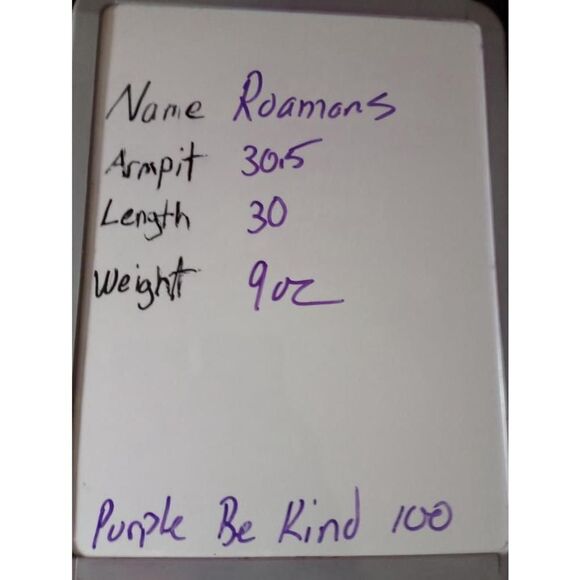 Name Roamans
Armpit 30.5
Length 30
Weight 9oz
Purple Be Kind 100